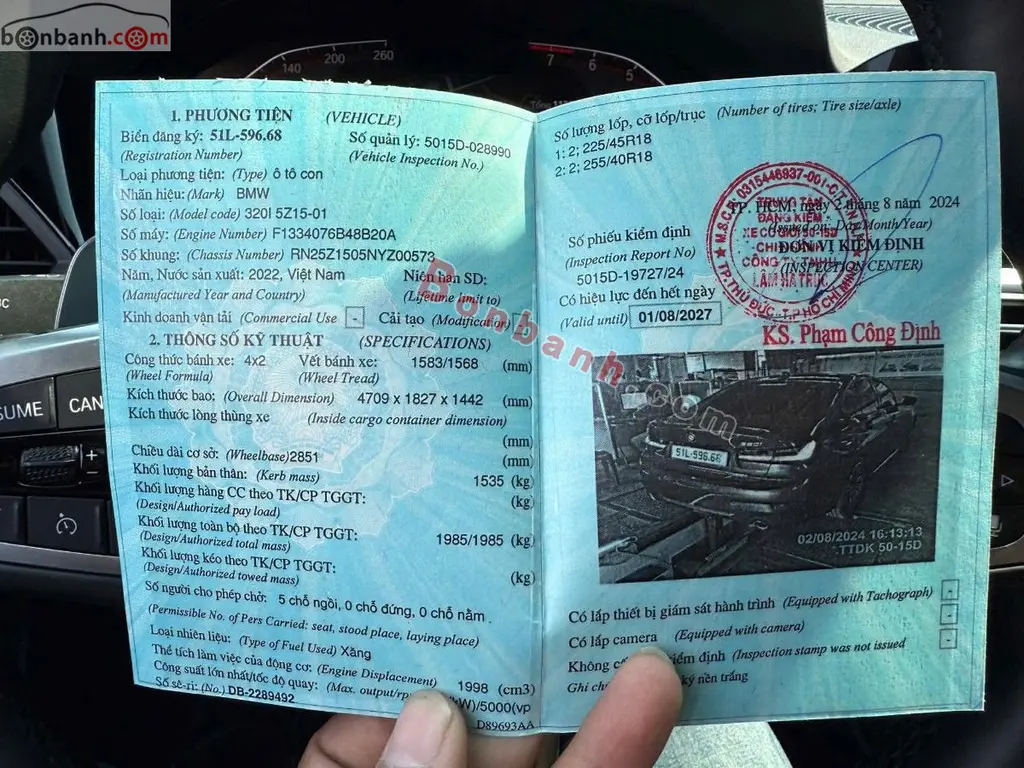 bonbanh.com
140
200
260
7
6
5
1. PHƯƠNG TIỆN (VEHICLE)
Biển đăng ký: 51L-596.68 Số quản lý: 5015D-028990
(Registration Number) (Vehicle Inspection No.)
Loại phương tiện: (Type) ô tô con
Nhãn hiệu: (Mark) BMW
Số loại: (Model code) 320I 5Z15-01
Số máy: (Engine Number) F1334076B48B20A
Số khung: (Chassis Number) RN25Z1505NYZ00573
Năm, Nước sản xuất: 2022, Việt Nam Niên hạn SD:
(Manufactured Year and Country) (Lifetime limit to)
Kinh doanh vận tải (Commercial Use - Cải tạo (Modification)
2. THÔNG SỐ KỸ THUẬT (SPECIFICATIONS)
Công thức bánh xe: 4x2 Vết bánh xe: 1583/1568 (mm)
(Wheel Formula) (Wheel Tread)
Kích thước bao: (Overall Dimension) 4709 x 1827 x 1442 (mm)
Kích thước lòng thùng xe (Inside cargo container dimension)
(mm)
Chiều dài cơ sở: (Wheelbase) 2851 (mm)
Khối lượng bản thân: (Kerb mass) 1535 (kg)
Khối lượng hàng CC theo TK/CP TGGT: (kg)
(Design/Authorized pay load)
Khối lượng toàn bộ theo TK/CP TGGT: 1985/1985 (kg)
(Design/Authorized total mass)
Khối lượng kéo theo TK/CP TGGT: (kg)
(Design/Authorized towed mass)
Số người cho phép chở: 5 chỗ ngồi, 0 chỗ đứng, 0 chỗ nằm .
(Permissible No. of Pers Carried: seat, stood place, laying place)
Loại nhiên liệu: (Type of Fuel Used) Xăng
Thể tích làm việc của động cơ: (Engine Displacement) 1998 (cm3)
Công suất lớn nhất/tốc độ quay: (Max. output/rpm W)/5000(vp
Số sê-ri: (No.) DB-2289492
D89693AA
Số lượng lốp, cỡ lốp/trục (Number of tires; Tire size/axle)
1: 2; 225/45R18
2: 2; 255/40R18
TP. HCM, ngày 2 tháng 8 năm 2024
(Issued on: Day/Month/Year)
Số phiếu kiểm định ĐƠN VỊ KIỂM ĐỊNH
(Inspection Report No) (INSPECTION CENTER)
5015D-19727/24
Có hiệu lực đến hết ngày
(Valid until) 01/08/2027
M.S.C.N:0315446937-001-C.T.T.N.H
TRUNG TÂM
ĐĂNG KIỂM
XE CƠ GIỚI 50-15D
CHI NHÁNH
CÔNG TY TNHH
LÂM HÀ TRÚC
TP.THỦ ĐỨC-T.P HỒ CHÍ MINH
KS. Phạm Công Định
Bonbanh.com
51L-596.68
02/08/2024 16:13:13
TTDK 50-15D
Có lắp thiết bị giám sát hành trình (Equipped with Tachograph) -
Có lắp camera (Equipped with camera) -
Không kiểm định (Inspection stamp was not issued -
Ghi ch ký nền trắng
SUME
CAN